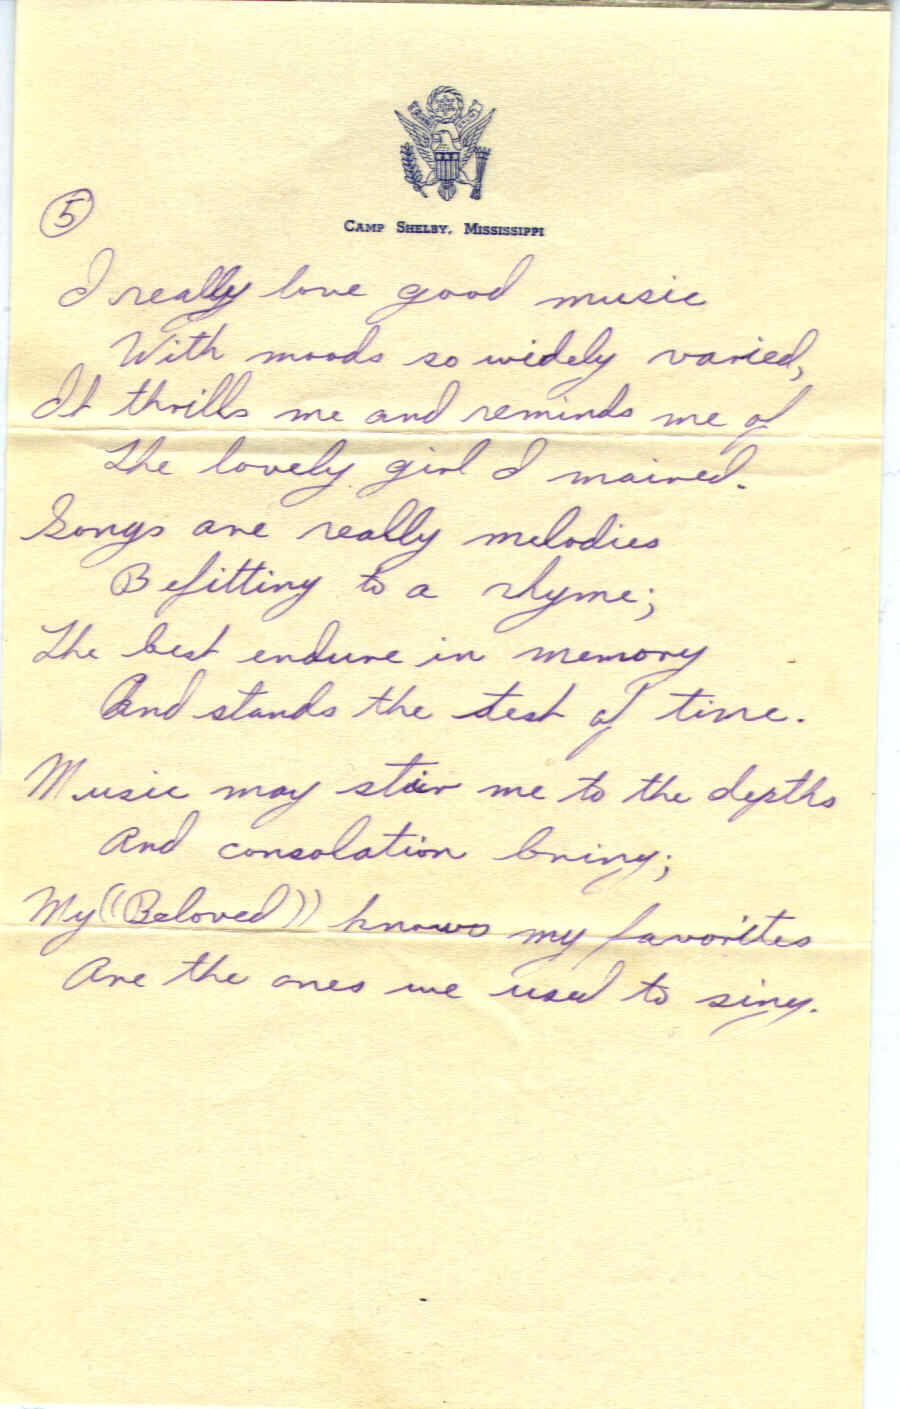 CAMP SHELBY, MISSISSIPPI
5
I really love good music
With moods so widely varied,
It thrills me and reminds me of
The lovely girl I mairred.
Songs are really melodies
Befitting to a rhyme;
The best endure in memory
And stands the test of time.
Music may stir me to the depths
And consolation bring;
My ((Beloved)) knows my favorites
Are the ones we used to sing.